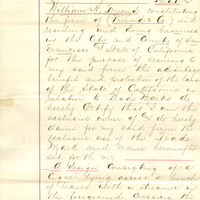 William H. Friend constituting
the firm of (Friend & Co) and
residing and doing business
in the City and County of San
Francisco & State of California
for the purpose of securing to
my said firm the advantage
benefit and protection of the laws
of the State of California in
relation to Trade Marks do
hereby Certify that I am the
exclusive owner of & do hereby
claim for my said firm the
exclusive use of the Trade
Mark and name hereinafter
set forth viz
A design consisting of a
Cigar lying across a bunch
of leaves with a streamer in
the foreground crossing the